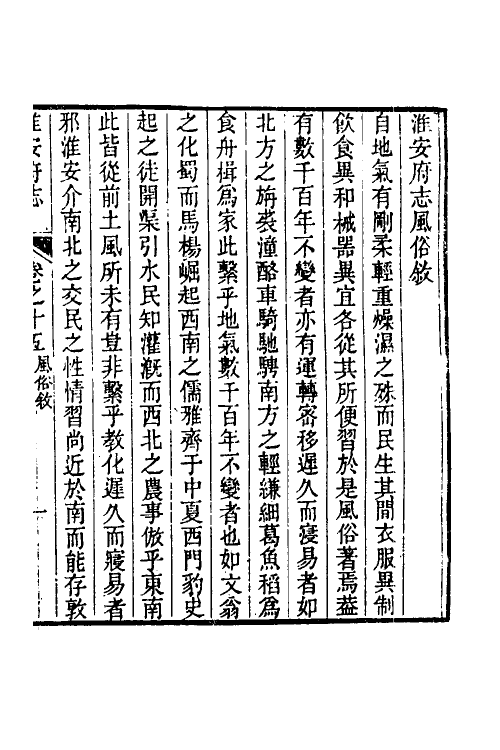 淮安府志風俗敘
自地氣有剛柔輕重燥濕之殊而民生其間衣服異制
飲食異和械器異宜各從其所便習於是風俗著焉葢
有數千百年不變者亦有運轉密移遲久而寖易者如
北方之旃裘湩酪車騎馳騁南方之輕縑細葛魚稻爲
食舟楫爲家此繫乎地氣數千百年不變者也如文翁
之化蜀而馬楊崛起西南之儒雅齊于中夏西門豹史
起之徒開渠引水民知灌漑而西北之農事倣乎東南
此皆從前土風所未有豈非繫乎教化遲久而寖易者
邪淮安介南北之交民之性情習尚近於南而能存敦
淮安府志 卷之十五 風俗敘 一